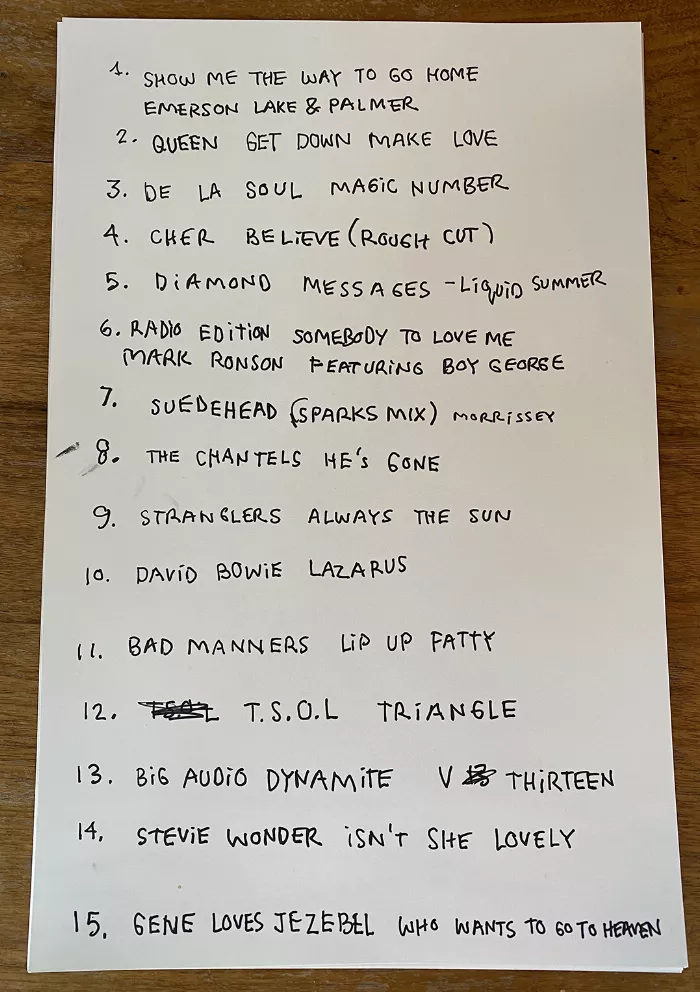 1. SHOW ME THE WAY TO GO HOME
EMERSON LAKE & PALMER
2. QUEEN GET DOWN MAKE LOVE
3. DE LA SOUL MAGIC NUMBER
4. CHER BELIEVE (ROUGH CUT)
5. DIAMOND MESSAGES - LIQUID SUMMER
6. RADIO EDITION SOMEBODY TO LOVE ME
MARK RONSON FEATURING BOY GEORGE
7. SUEDEHEAD (SPARKS MIX) MORRISSEY
8. THE CHANTELS HE'S GONE
9. STRANGLERS ALWAYS THE SUN
10. DAVID BOWIE LAZARUS
11. BAD MANNERS LIP UP FATTY
12. T.S.O.L TRIANGLE
13. BIG AUDIO DYNAMITE V THIRTEEN
14. STEVIE WONDER ISN'T SHE LOVELY
15. GENE LOVES JEZEBEL WHO WANTS TO GO TO HEAVEN